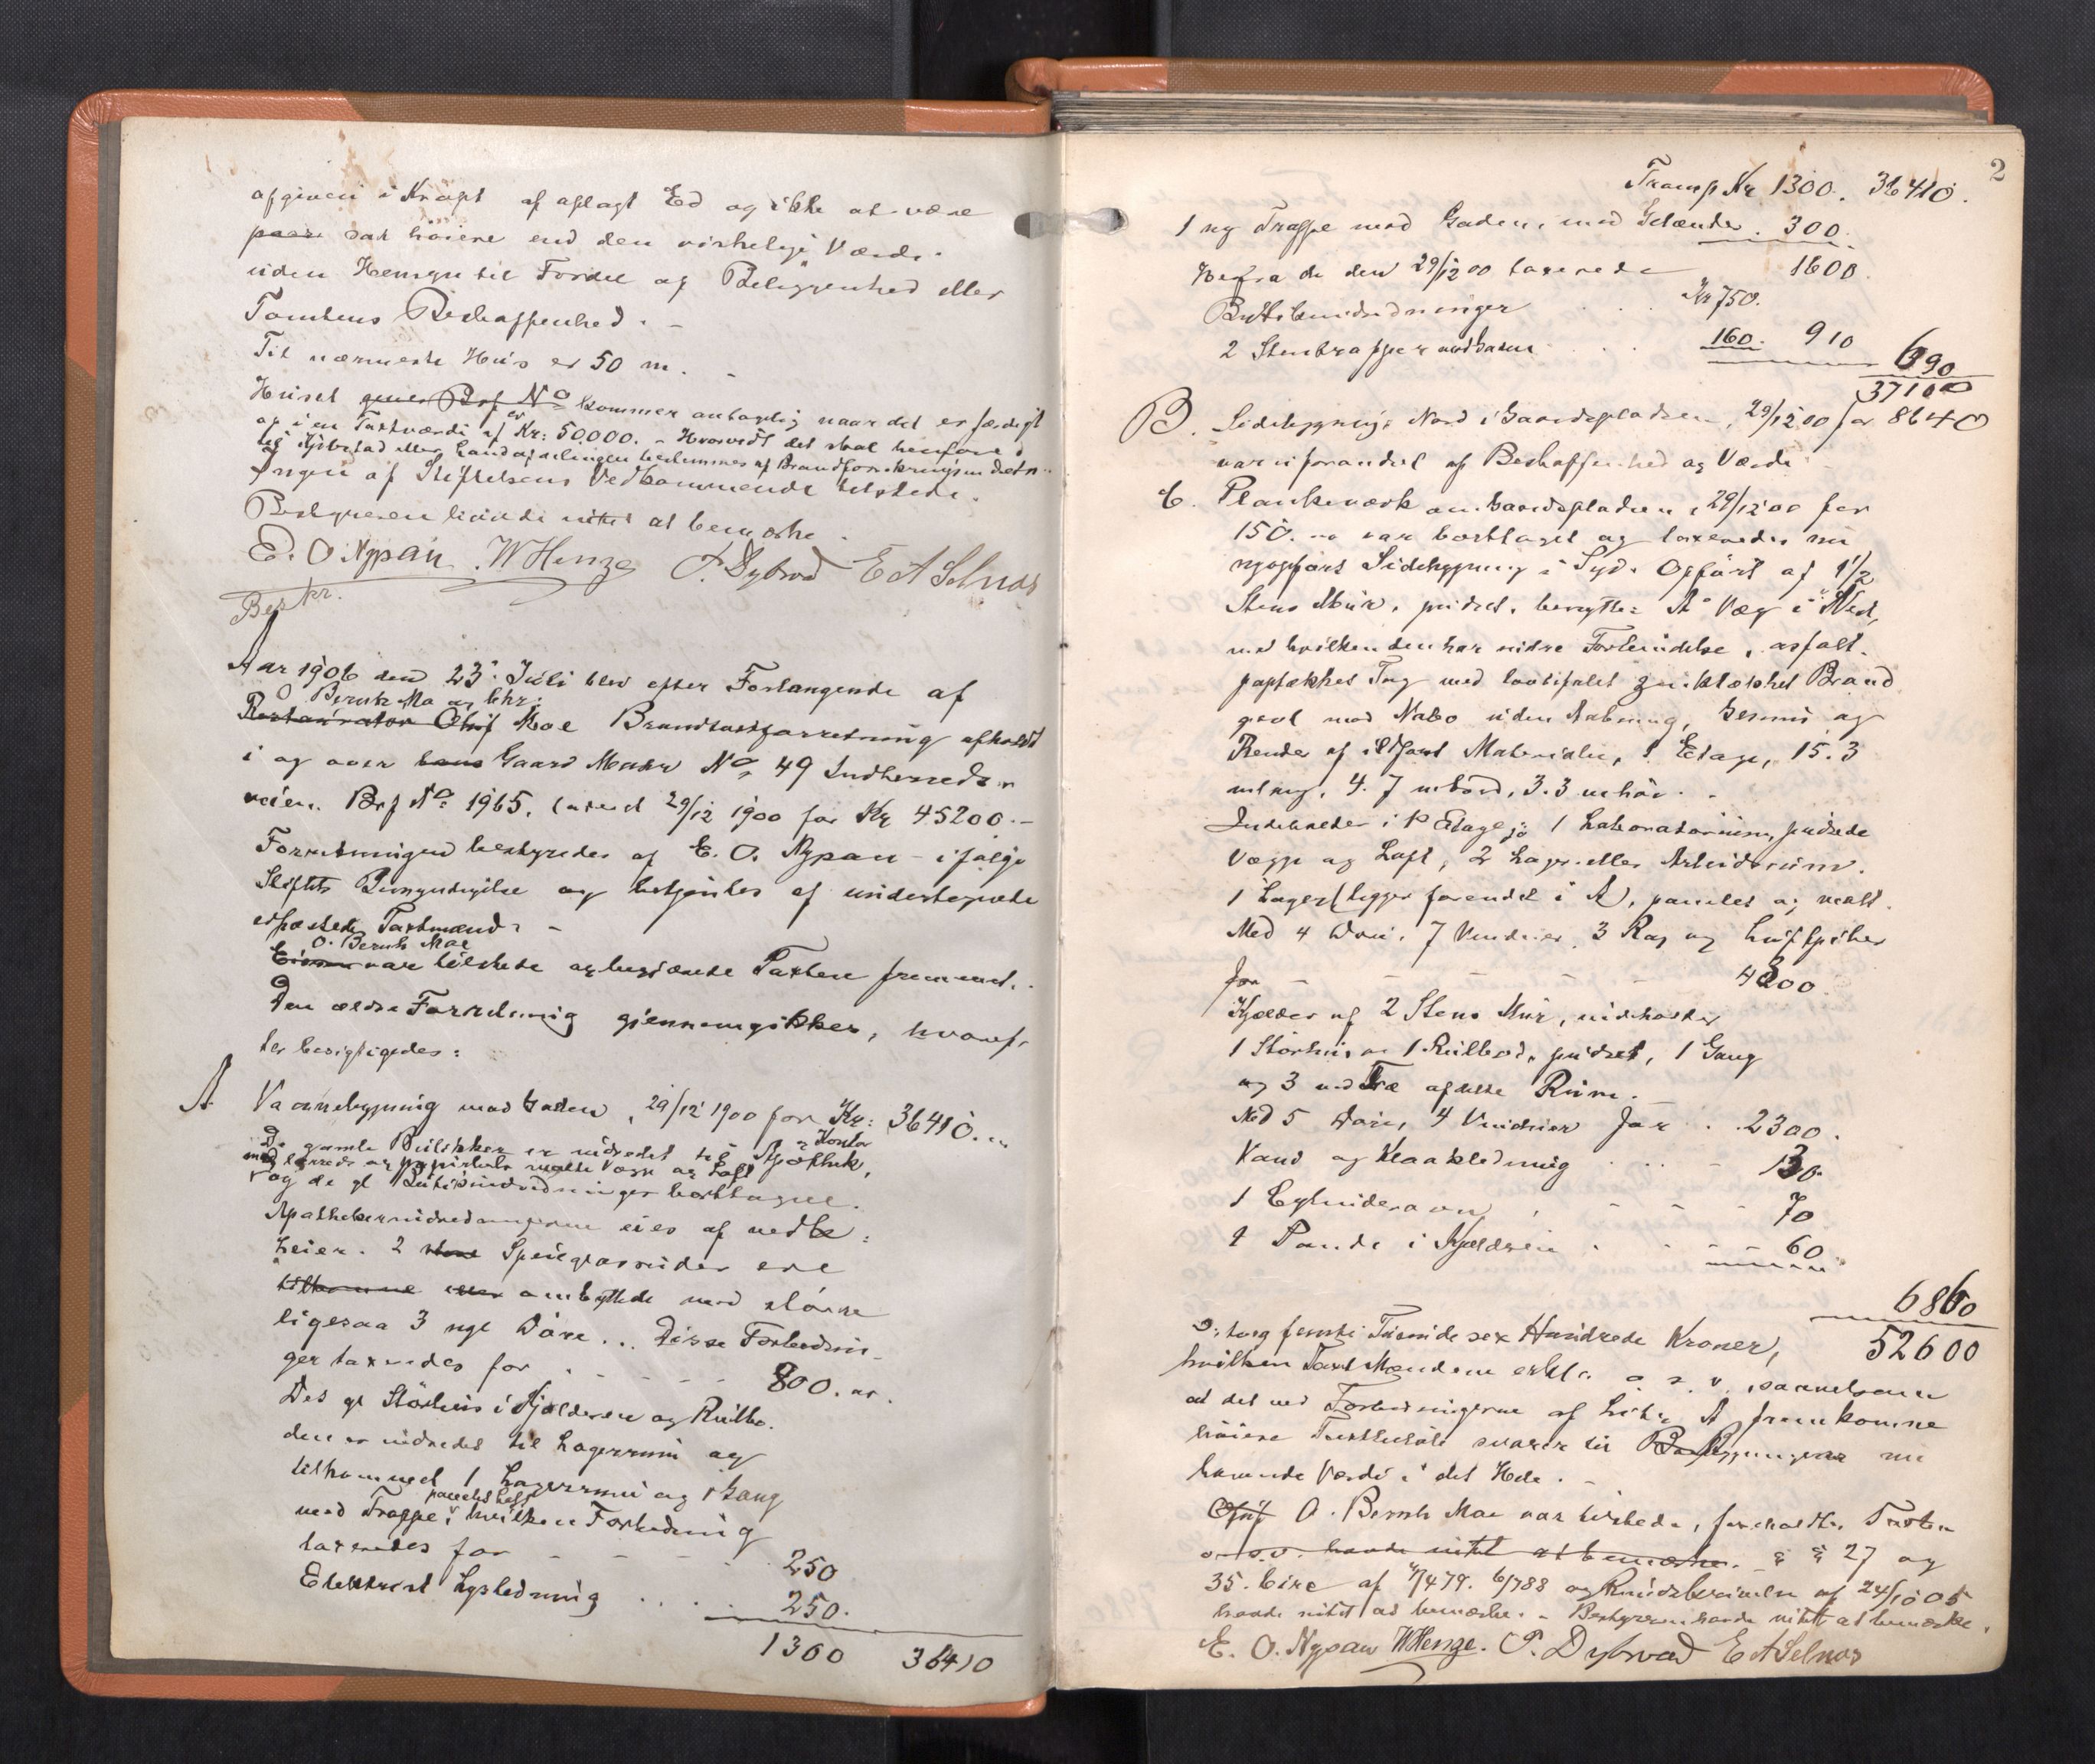 afgiven i Kraft af aflagt Ed og ikke at være
sat høiere end den virkelige Værdi
uden Hensyn til Fordel af Beliggenhed eller
Tomtens Beskaffenhed. -
Til nærmeste Hus er 50 m. -
Huset Brf No kommer antagelig naar det er færdigt
op i en Taxtværdi af Kr: 50.000. - Hvorvidt det skal henføres
til Kjøbstad eller Landafdelingen bestemmes af Brandforsikringsindretn.
Ingen af Stiftelsens Vedkommende tilstede.
Bestyreren havde intet at bemærke.
E. O. Nypan W Henze P. Dybvad E A Selnæs
Bestyr.
Aar 1906 den 23. Juli blev efter Forlangende af
O Bernh. Moe
Restauratør Oluf Moe Brandtaxtforretning afholdt
i og over hans Gaard Matr No 49 Indherreds-
veien. Brf No 1965, taxeret 29/12 1900 for Kr 45200.-
Forretningen bestyredes af E. O. Nypan - ifølge
Stiftets Bemyndigelse og betjentes af undertegnede
edfæstede Taxtmænd. -
O. Bernh Moe
Eieren var tilstede og begjærede Taxten fremmet.
Den ældre Forretning gjennemgikkes, hvoref-
ter besigtigedes:
A Vaanebygning mod Gaden, 29/12 1900 for Kr: 36410.
De gamle Butikker er indredet til Apothek, & Kontor
med lærreds og papirklædte malte Vægge og Loft
og de gl Butikindredninger borttagne.
Apothekerindredningerne eies af vedk:
Leier. 2 store Speilglasruder ere
tilkomne ombyttede med større
ligesaa 3 nye Døre... Disse Forbedrin-
ger taxeredes for - - - - 800.
Det gl Størhus i Kjelderen og Rullbo-
den er indredet til Lagerrum og
tilkommet 1 Lagerrum og 1 Gang
panelet Loft
med Trappe i hvilken Forbedring
taxeredes for - - - - 250
Elektrisk Lysledning . . . . 250.
1300 36410
2
Transp Kr 1300. 36410.
1 ny Trappe mod Gaden, med Gelænder. 300.
Herfra de den 29/12 00 taxerede 1600.
Butikindredninger . . Kr 750.
2 Stentrapper 160. 910 690
37100
B. Sidebygning i Nord i Gaardspladsen, 29/12 00 for 8640
var uforandret af Beskaffenhed og Værdi
C. Plankeværk om Gaardspladsen, 29/12 00 for
150.- var borttaget og taxeredes nu
nyopført Sidebygning i Syd. Opført af 1 1/2
Stens Mur, pudset, benytter A's Væg i Vest,
med hvilken den har indre Forbindelse, asfalt-
paptækket Tag med Brand
gavl mod Nabo uden Aabning, Gesims og
Render af ildfast Materiale, 1 Etage, 15.3
m lang, 4.7 m bred, 3.3 m høi. -
Indeholder i 1ste Etage: 1 Laboratorium, pudsede
Vægge og Loft, 2 Lager- eller Arbeidsrum.
1 Lager (ligger forendet i A), panelet og malt.
Med 4 Døre, 7 Vinduer, 3 Rag og Luftpiber
for - - - - 4300.
Kjælder af 2 Stens Mur, indeholder
1 Størhus og 1 Rullbod, pudset, 1 Gang
og 3 med Træ afdelte Rum.
Med 5 Døre, 4 Vinduer for . . 2300.
Vand og Kloakledning . . . - 130.
1 Cylinderovn . - - - 70
1 Pande i Kjelderen . - - - 60
6860
52600
D: seks Hundrede Kroner,
hvilken Taxt Mændene erkl. o. s. v. saavelsom
at det ved Forbedringerne af Litr. A fremkomne
høiere Taxtbeløb svarer til Bygningens nu-
havende Værdi i det Hele. -
Oluf O. Bernh Moe var tilstede, foreholdtes Taxten
o. s. v. havde intet at bemærke. - § § 27 og
35. Circ af 6/7 88 og Rundskrivelse af 24/10 05
havde intet at bemærke. - Bestyreren havde intet at bemærke.
E. O. Nypan W Henze. P. Dybvad E A Selnæs